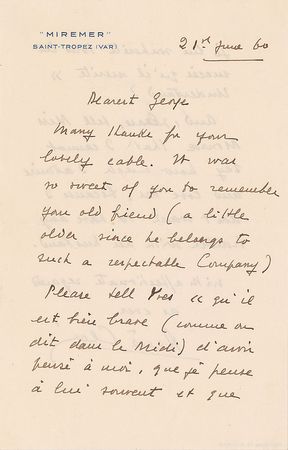 "MIREMER"
SAINT-TROPEZ (VAR)
21st June 60
Dearest George
Many thanks for your
lovely cable. It was
so sweet of you to remember
your old friend (a little
older since he belongs to
such a respectable Company)
Please tell Yves "qu'il
est bien brave (comme on
dit dans le Midi) d'avoir
pensé à moi, que je pense
à lui souvent et que